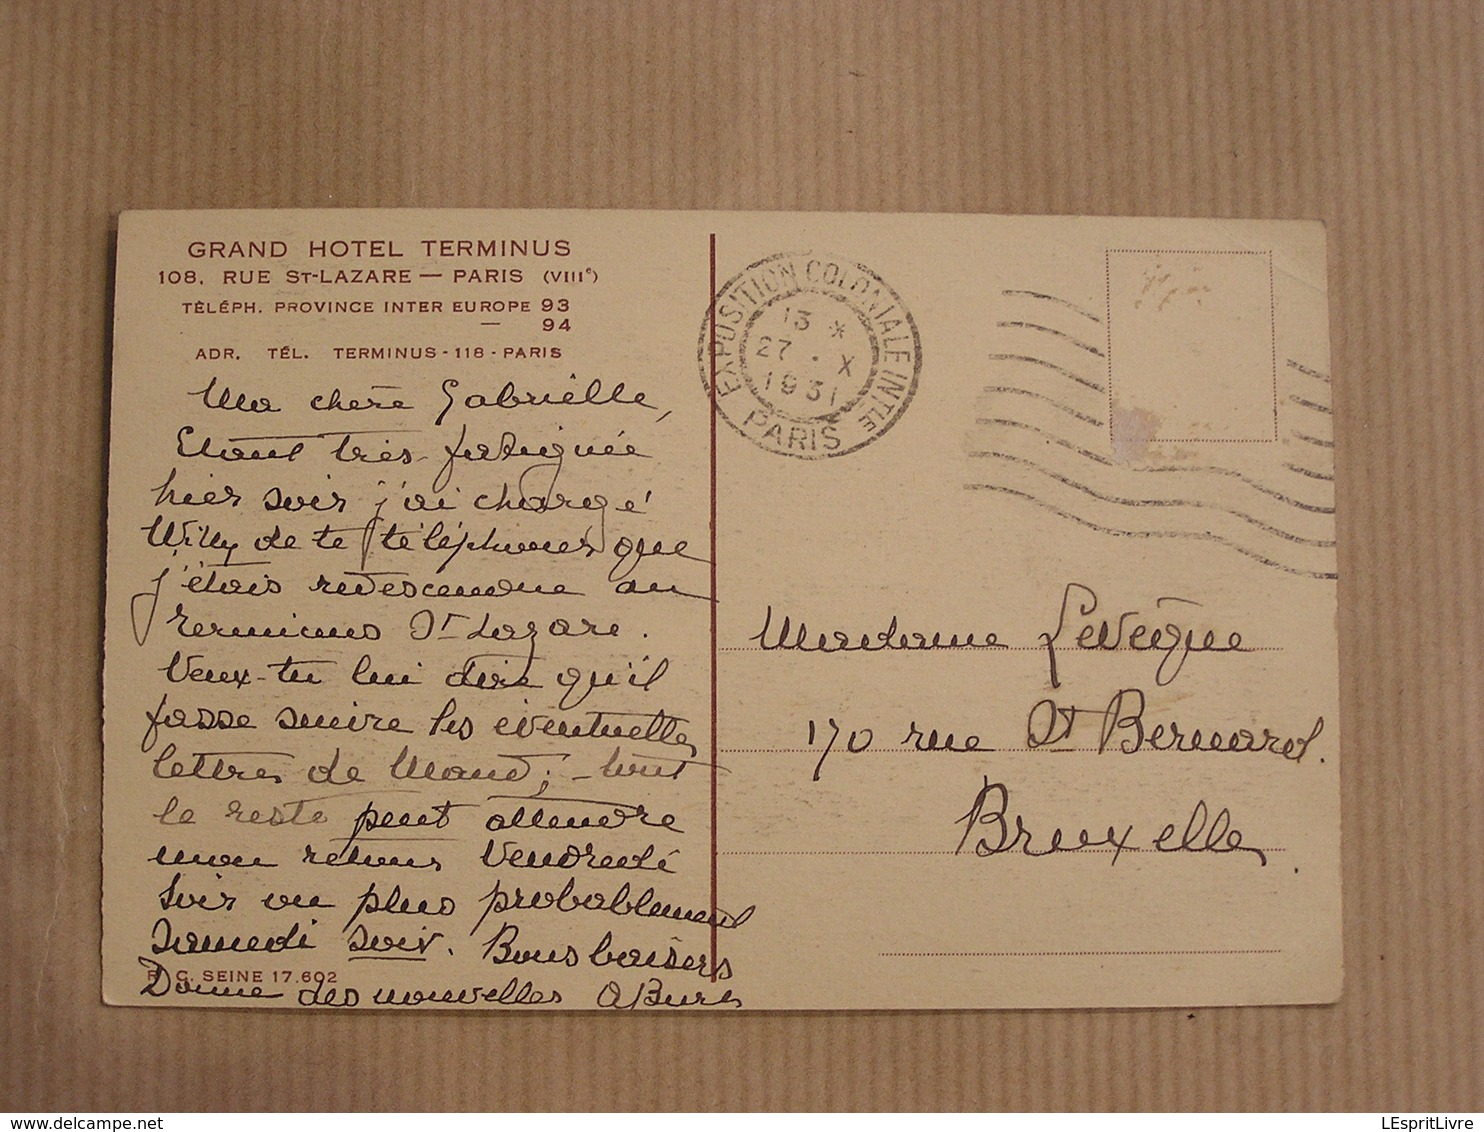 GRAND HOTEL TERMINUS
108, RUE ST-LAZARE — PARIS (VIIIe)
TÉLÉPH. PROVINCE INTER EUROPE 93
— 94
ADR. TÉL. TERMINUS-118-PARIS
Ma chère Gabrielle,
Etant très fatiguée
hier soir j'ai chargé
Willy de te téléphoner que
j'étais redescendue au
Terminus St Lazare.
Veux-tu lui dire qu'il
fasse suivre les éventuelles
lettres de Maud; - tout
le reste peut attendre
mon retour Vendredi
soir ou plus probablement
Samedi soir. Bons baisers
R. C. SEINE 17.602
Donne des nouvelles
EXPOSITION COLONIALE INTLE
13 *
27 . X
1931
PARIS
Madame Levêque
170 rue St Bernard.
Bruxelles
LEspritLivre